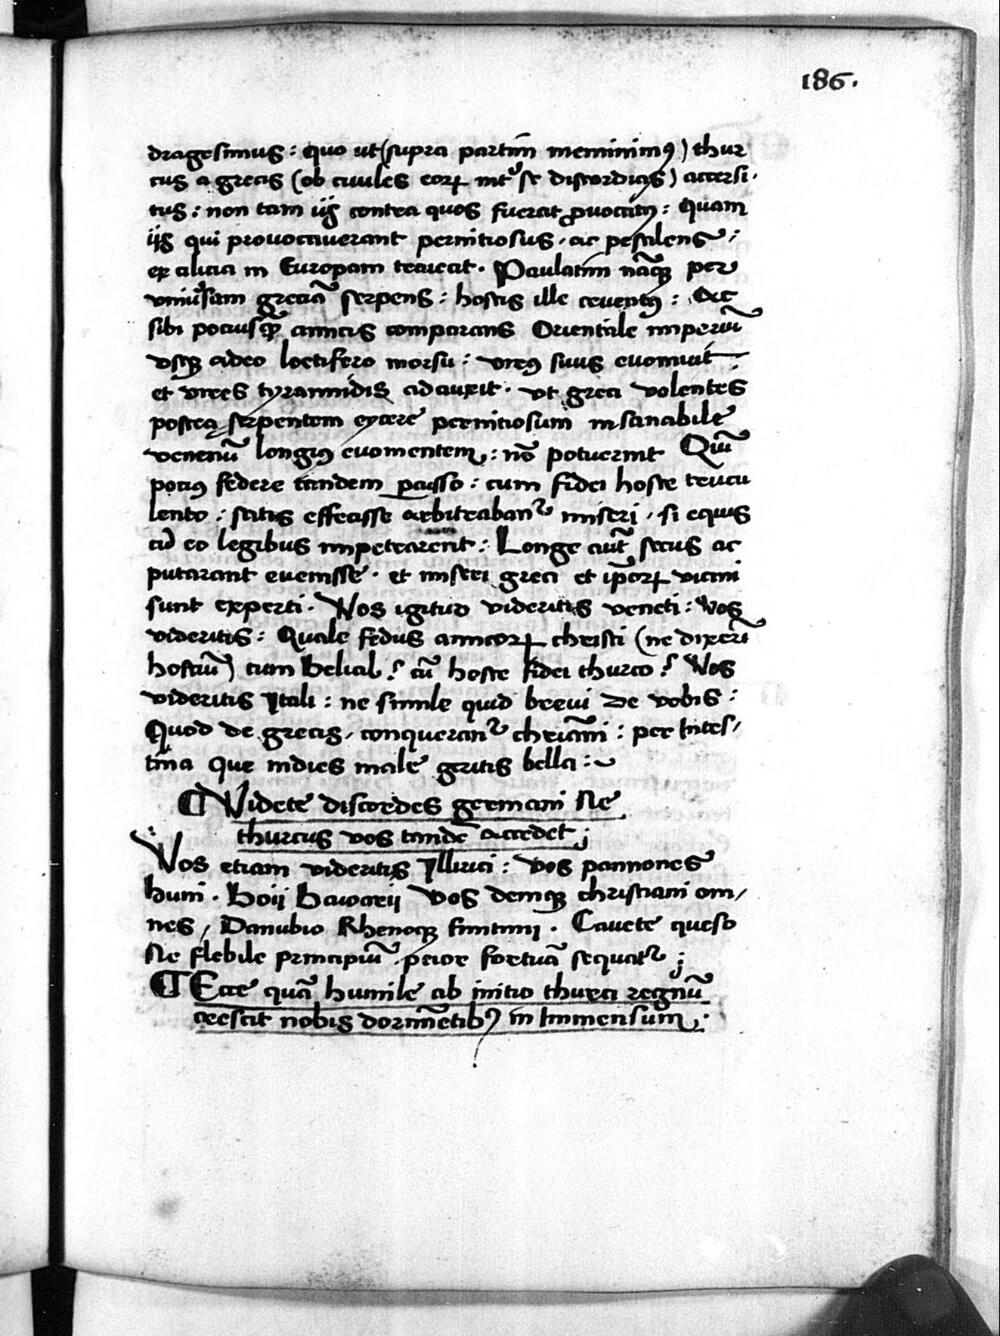 186.
dragesimus : quo ut (supra partim̄ meminimꝰ) thur
cus a grecis (ob ciuiles eorꝝ int̾ se discordias) accersi-
tus : non tam iis contra quos fuerat ꝓuocatꝰ : quam
iis qui prouocauerant pernitiosus . ac pestilens :
ex asia in Europam traiecit . Paulatim nāqꝫ per
vniu̾sam greciā serpens : hostis ille cruentꝰ : Ac
sibi pociusqꝫ̄ amicis comparans Orientale imperiū
vsqꝫ adeo loetifero morsu : virꝰ suus euomuit :
et vires tyrannidis adauxit . vt greci volentes
postea serpentem eycere pernitiosum insanabile
venenū longiꝰ euomentem : nō potuerint Quī
pociꝰ federe tandem ꝑcusso : cum fidei hoste trucu
lento : satis effecisse arbitrabant᷑ miseri . si equis
cū eo legibus impetrarent : Longe aut̄ secus ac
putarant euenisse . et miseri greci et ip̄orꝝ vicini
sunt experti . Vos igitur videritis veneti : vos
videritis : Quale fedus amicorꝝ christi (ne dixerī
hostiū) cum Belial ? cū hoste fidei thurco ? Vos
videritis Itali : ne simile quid breui de vobis :
Quod de grecis , conquerant᷑ chr̄iani : per intes/
tina que indies male geritis bella :
¶ Videte discordes germani Ne
thurcus vos tandē accedet ;
Vos etiam videritis Illirici : vos pannones
huni . Boii Bawarii Vos deniqꝫ christiani om/
nes , Danubio Rhenoqꝫ finitimi . Cauete queso
Ne flebile principiū . peior fortūa sequat᷑ ;
¶ Ecce quā humile ab initio thurci regnū
crescit nobis dormiētibꝰ in Immensum .